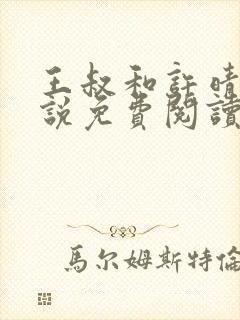 王叔和許晴
説免費閱讀
馬尔姆斯特倫